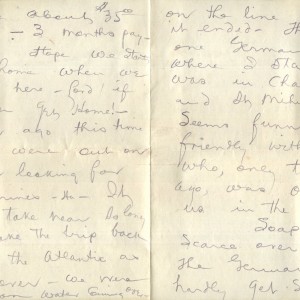 about $35.00
- 3 months pay -
Hope we stay
home when we
here - Lord if
get Home -
ago this time
were out on
looking for
mines - Ho - It
take near so long
take the trip back
the Atlantic as
over - we were
water
on the line
it ended - Th
one German
where I sta
was in Cha
and St Mih
Seems funn
friendly with
who, only t
ago, was o
us in the
Soap
Scarce over
the German
hardly get S